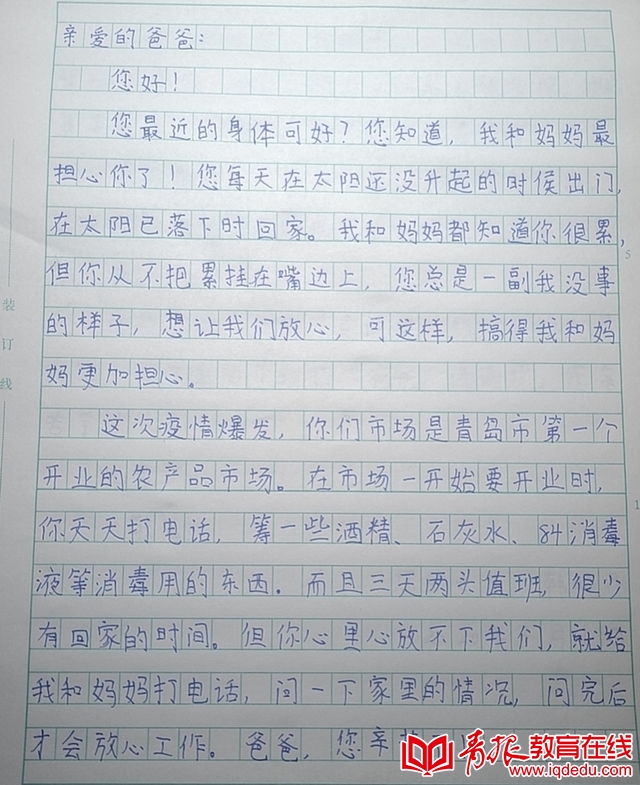 亲爱的爸爸：
您好！
您最近的身体可好？您知道，我和妈妈最
担心你了！您每天在太阳还没升起的时候出门，
在太阳已落下时回家。我和妈妈都知道你很累，
但你从不把累挂在嘴边上，您总是一副我没事
的样子，想让我们放心，可这样，搞得我和妈
妈更加担心。
这次疫情爆发，你们市场是青岛市第一个
开业的农产品市场。在市场一开始要开业时，
你天天打电话，筹一些酒精、石灰水、84消毒
液等消毒用的东西．而且三天两头值班，很少
有回家的时间。但你心里心放不下我们，就给
我和妈妈打电话，问一下家里的情况，问完后
才会放心工作。爸爸，您亲
装
订
线
5
1
青报教育在线
www.iqdedu.com